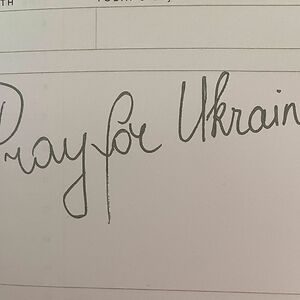 TH
Pray for Ukrain